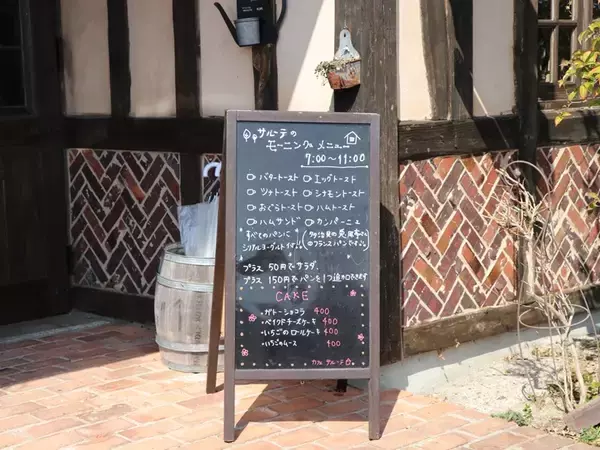 サルーテの
モーニングメニュー
7:00〜11:00
バタートースト
エッグトースト
ツナトースト
シナモントースト
おぐらトースト
ハムトースト
ハムサンド
カンパーニュ
すべてのパンに
シリアルヨーグルト
フランスパンです。
プラス 50円でサラダ、
プラス 150円でパンを1つ追加できます
CAKE
・ガトーショコラ 400
・ベイクドチーズケーキ 400
・いちごのロールケーキ 400
・いちごのムース 400
カフェ サルーテ